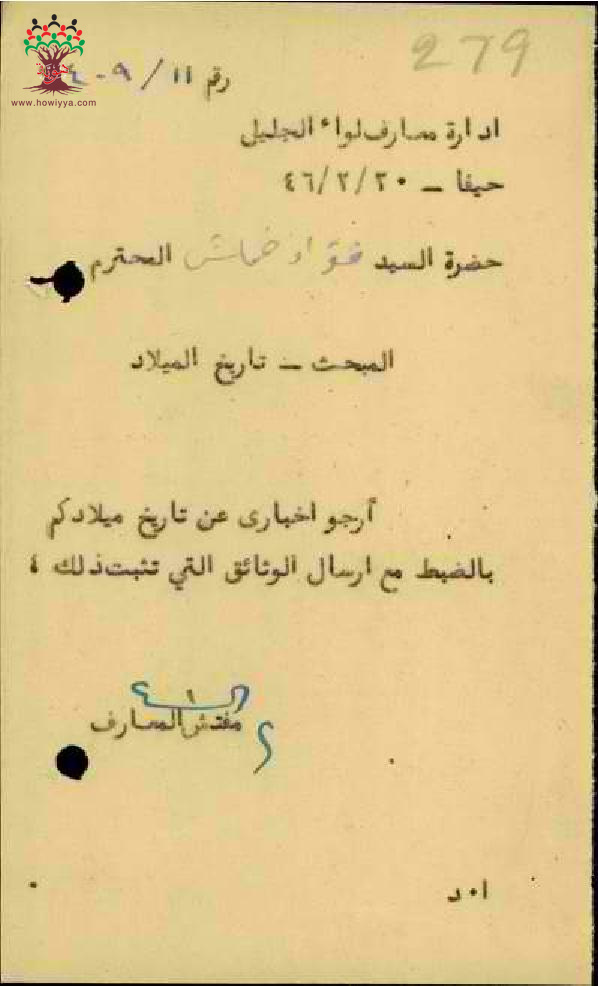 279
رقم ١١/ ٤٠٩
www.howiyya.com
ادارة معارف لواء الجليل
حيفا — ٤٦/٢/٢٠
حضرة السيد فؤاد خماش المحترم
المبحث — تاريخ الميلاد
أرجو اخباري عن تاريخ ميلادكم
بالضبط مع ارسال الوثائق التي تثبت ذلك ،
مفتش المعارف
ا٠ د